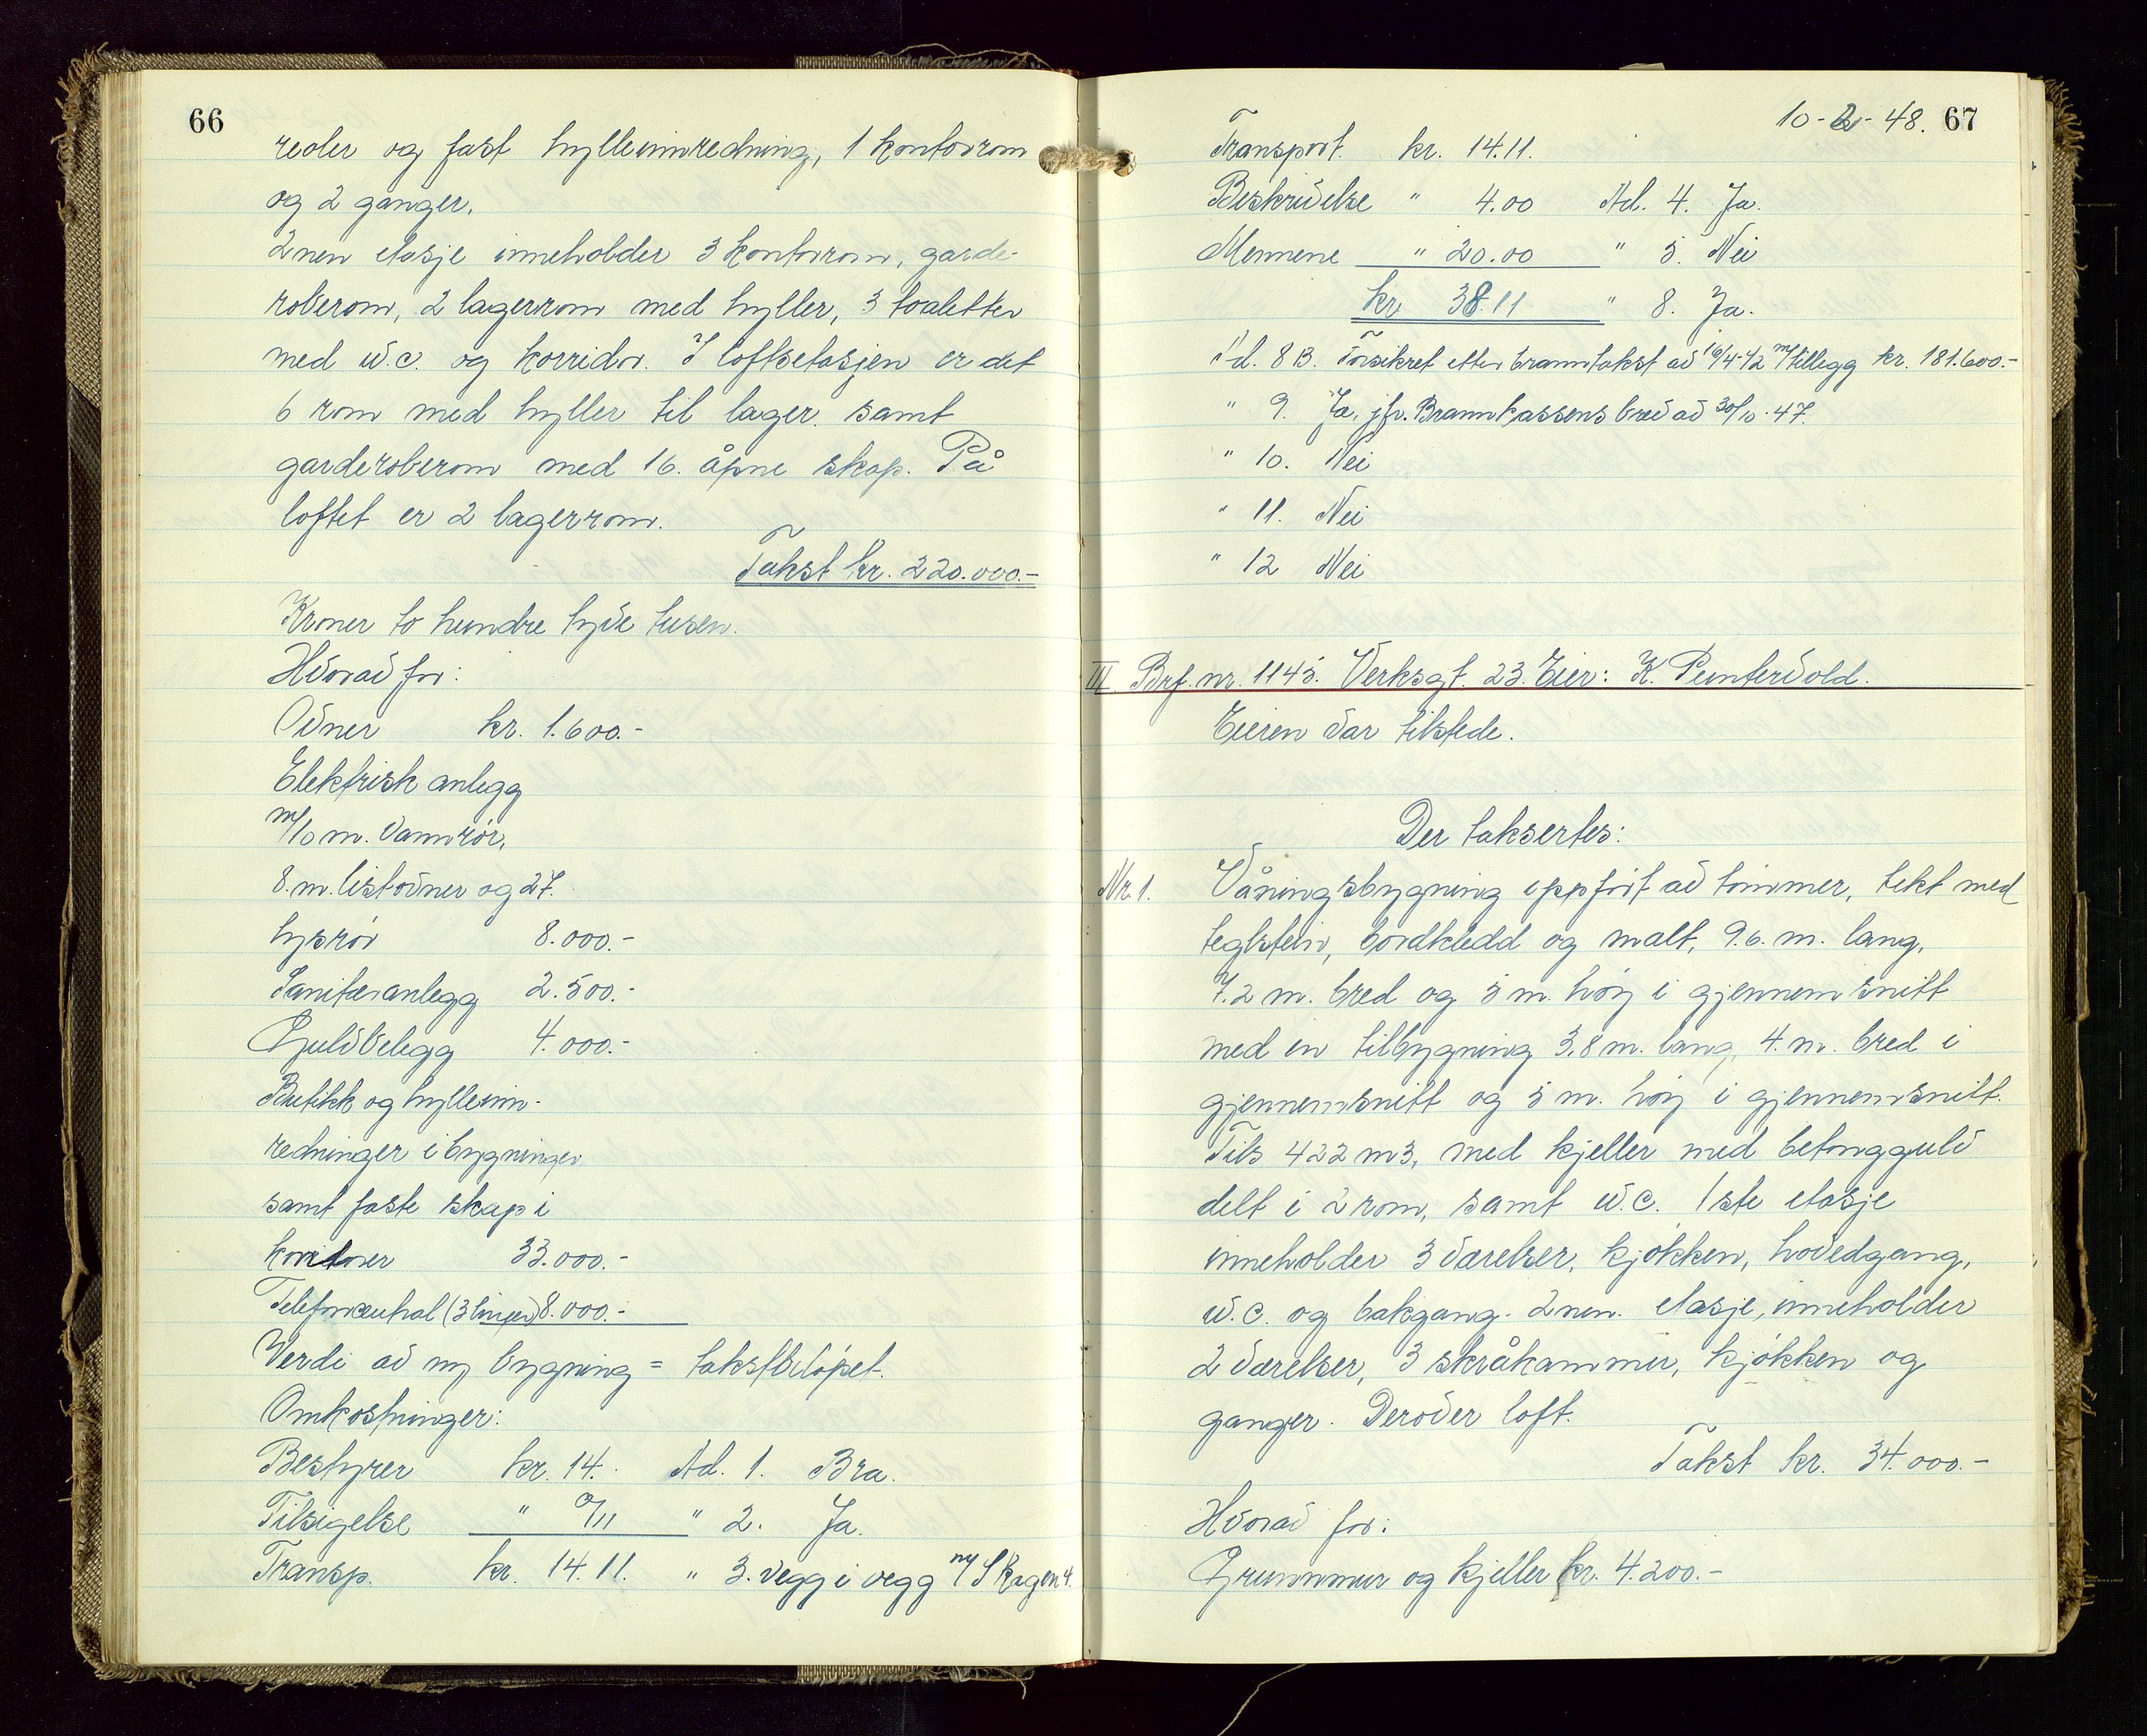 66
reoler og fast hylleinnredning, 1 kontorrom
og 2 ganger.
2nen etasje inneholder 3 kontorrom, garde-
roberom, 2 lagerrom med hyller, 3 toaletter
med w.c. og korridor. I loftsetasjen er det
6 rom med hyller til lager samt
garderoberom med 16. åpne skap. På
loftet er 2 lagerrom.
Takst kr. 220.000.-
Kroner to hundre tyve tusen.
Hvorav for:
Ovner kr. 1.600.-
Elektrisk anlegg
m/10 m. vannrör,
8.m. listovner og 27.
lysrör 8.000.-
Sanitæranlegg 2.500.-
Gulvbelegg 4.000.-
Butikk og hylleinn-
redninger i bygningen
samt faste skap i
korridorer 33.000.-
Telefoncentral (3 linjer) 8.000.-
Verdi av ny bygning = takstbelöpet.
Omkostninger:
Bestyrer kr. 14.- Ad. 1. Bra.
Tilsigelse " 0/11 " 2. Ja.
Transp. kr. 14.11. " 3. vegg i vegg m/ Skagen 4.
10-2-48. 67
Transport. kr. 14.11.
Beskrivelse " 4.00 Ad. 4. Ja.
Mennene " 20.00 " 5. Nei
kr 38.11 " 8. Ja.
Ad. 8 B. Forsikret etter branntakst av 16/4-42 m/tillegg kr. 181.600.-
" 9. Ja, jfr. Brannkassens brev av 30/10-47.
" 10. Nei
" 11. Nei
" 12 Nei
III Brf. nr. 1145. Verksgt. 23. Eier: K. Puntervold.
Eieren var tilstede.
Der taksertes:
Nr. 1. Våningsbygning oppfört av tömmer, tekt med
teglstein, bordkledd og malt, 9.6. m. lang,
7.2 m. bred og 5 m. höy i gjennemsnitt
med en tilbygning 3.8 m. lang, 4. m. bred i
gjennemsnitt og 5 m. höy i gjennemsnitt.
Tils 422 m3, med kjeller med betonggulv
delt i 2 rom, samt w.c. 1ste etasje
inneholder 3 værelser, kjökken, hovedgang,
w.c. og bakgang. 2nen. etasje, inneholder
2 værelser, 3 skråkammer, kjökken og
ganger. Derover loft.
Takst kr. 34.000.-
Hvorav for:
Grunnmur og kjeller kr. 4.200.-